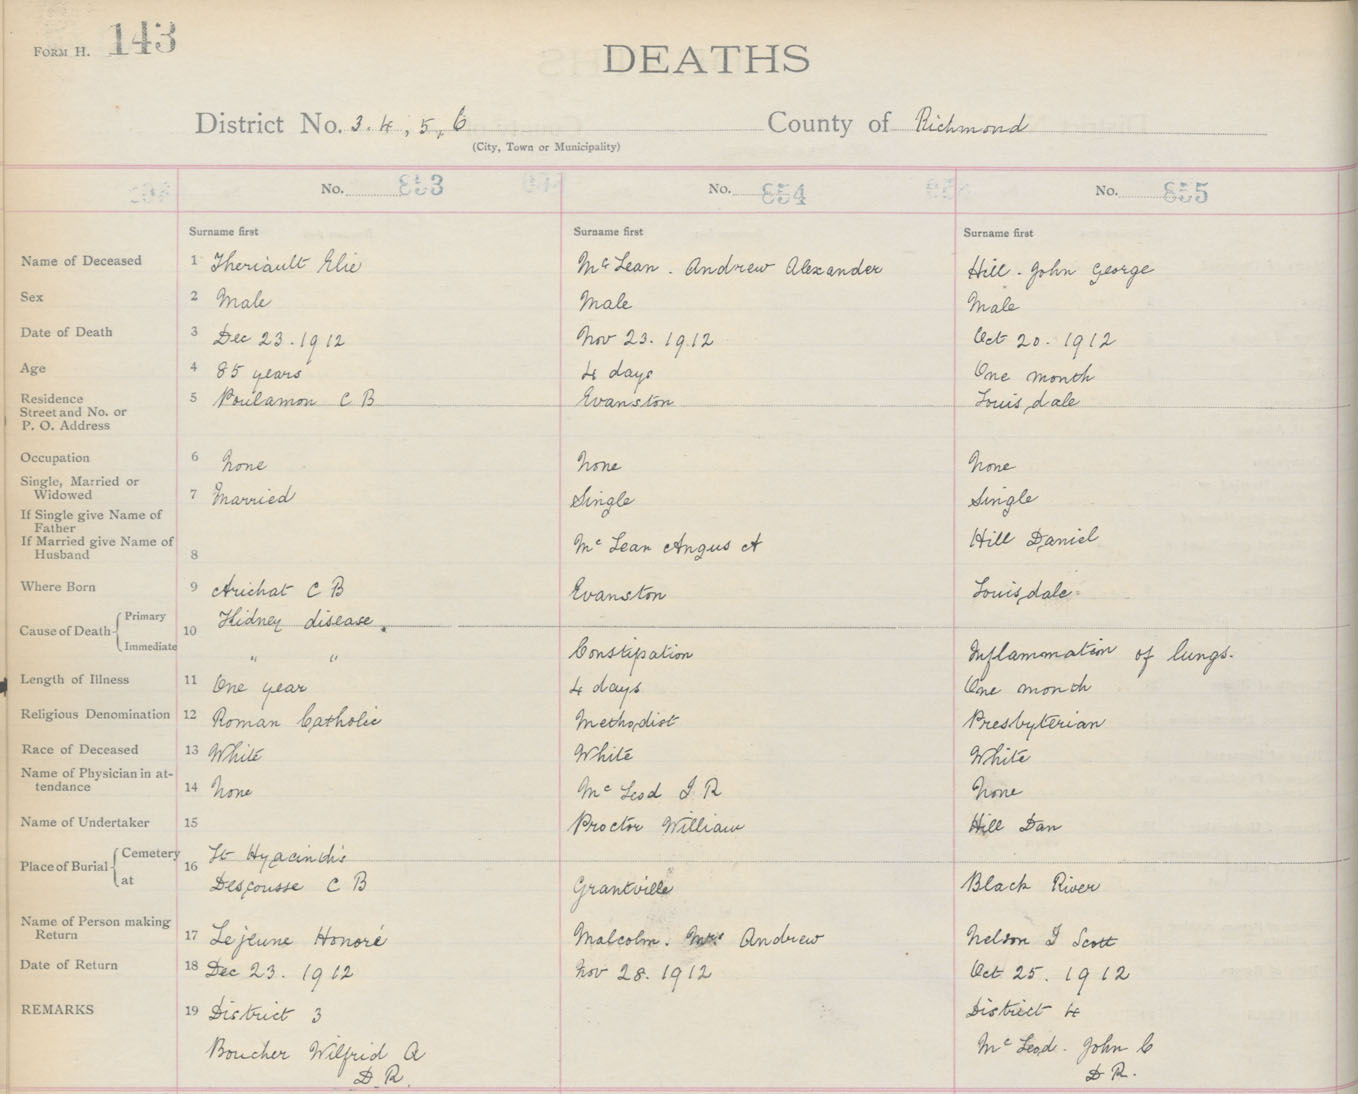 FORM H. 143
DEATHS
District No. 3. 4, 5, 6 County of Richmond
(City, Town or Municipality)
No. 853 No. 854 No. 855
Surname first Surname first Surname first
Name of Deceased 1 Theriault Elie McLean. Andrew Alexander Hill. John George
Sex 2 Male Male Male
Date of Death 3 Dec 23. 1912 Nov 23. 1912 Oct 20. 1912
Age 4 85 years 4 days One month
Residence 5 Poulamon C B Evanston Louisdale
Street and No. or
P. O. Address
Occupation 6 None None None
Single, Married or
Widowed 7 Married Single Single
If Single give Name of
Father
If Married give Name of
Husband 8 McLean Angus A Hill Daniel
Where Born 9 Arichat C B Evanston Louisdale
Cause of Death 10 Primary Kidney disease
Immediate " " Constipation Inflammation of lungs.
Length of Illness 11 One year 4 days One month
Religious Denomination 12 Roman Catholic Methodist Presbyterian
Race of Deceased 13 White White White
Name of Physician in at-
tendance 14 None McLeod J R None
Name of Undertaker 15 Proctor William Hill Dan
Place of Burial 16 Cemetery St Hyacinth's
at Descousse C B Grantville Black River
Name of Person making
Return 17 Lejeune Honoré Malcolm. Mrs Andrew Nelson J Scott
Date of Return 18 Dec 23. 1912 Nov 28. 1912 Oct 25. 1912
REMARKS 19 District 3 District 4
Boucher Wilfrid A McLeod. John C
D. R. D R.